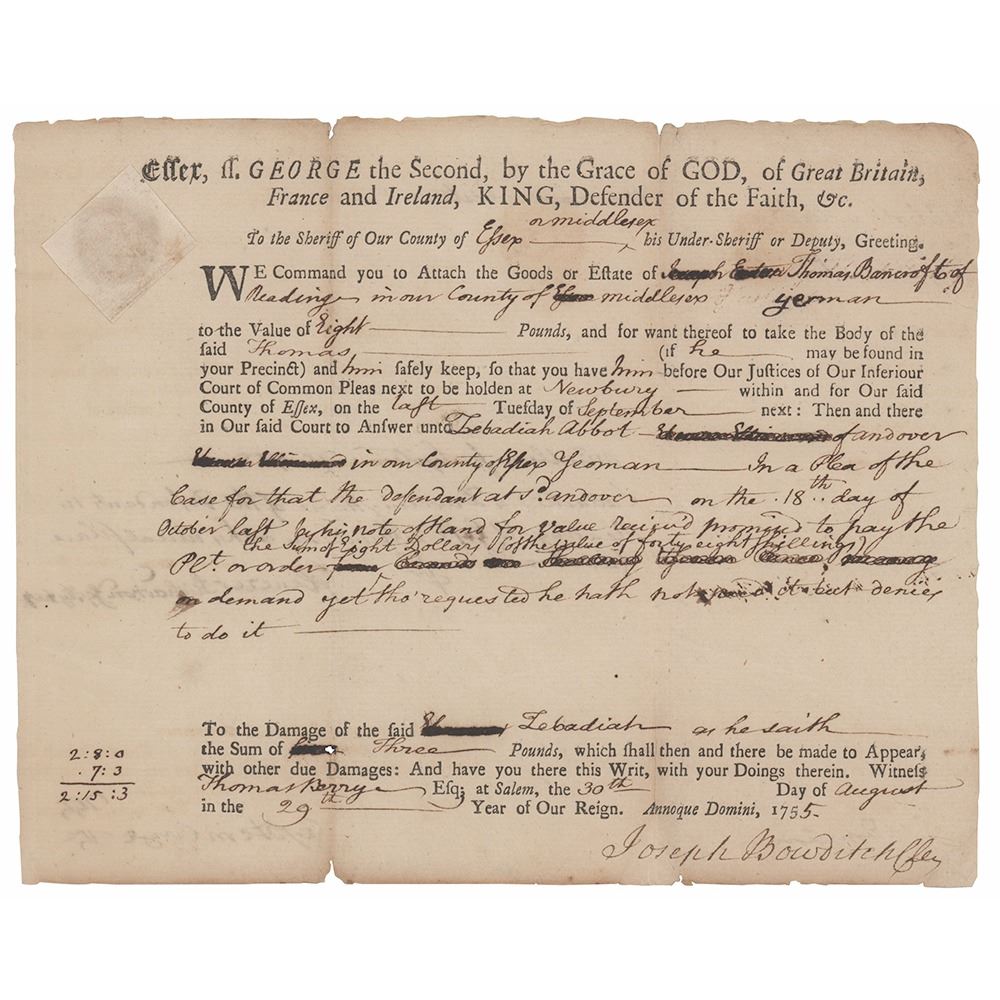 Eſſex, ſſ. GEORGE the Second, by the Grace of GOD, of Great Britain,
France and Ireland, KING, Defender of the Faith, &c.
or middlesex
To the Sheriff of Our County of Eſsex his Under-Sheriff or Deputy, Greeting.
WE Command you to Attach the Goods or Eſtate of Thomas Bancroft of
Reading in our County of middlesex yeoman
to the Value of Eight Pounds, and for want thereof to take the Body of the
ſaid Thomas (if he may be found in
your Precinct) and him ſafely keep, ſo that you have him before Our Juſtices of Our Inferiour
Court of Common Pleas next to be holden at Newbury within and for Our ſaid
County of Eſſex, on the last Tueſday of September next: Then and there
in Our ſaid Court to Anſwer unto Zebadiah Abbot of andover
in our County of Eſsex Yeoman In a Plea of the
Case for that the defendant at sd. andover on the 18th day of
October last by his note of Hand for value receiv'd promised to pay the
the Sum of Eight Dollars (of the value of forty eight shillings)
Plt. or order
on demand yet tho' requested he hath not paid it but denies
to do it
To the Damage of the ſaid Zebadiah as he saith
the Sum of Three Pounds, which ſhall then and there be made to Appear,
with other due Damages: And have you there this Writ, with your Doings therein. Witneſs
Thomas Berry Eſq; at Salem, the 30th Day of August
in the 29th Year of Our Reign. Annoque Domini, 1755.
Joseph Bowditch Cler
2:8:0
.7:3
2:15:3